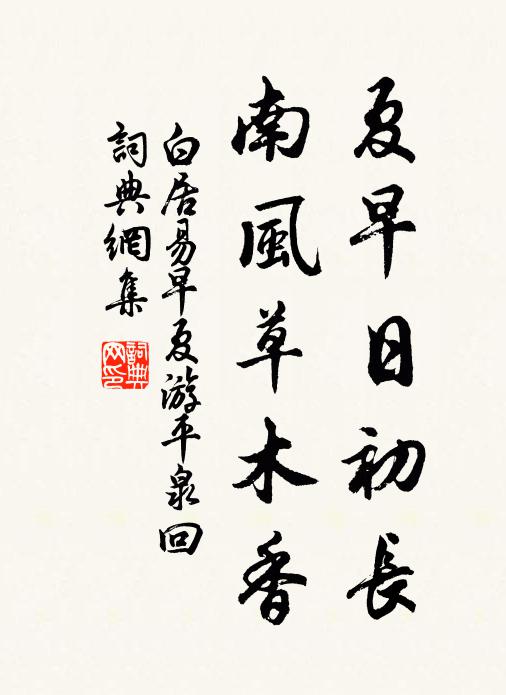 夏早日初長
南風草木香
白居易早夏游平泉回
詞典網集
詞典
网印